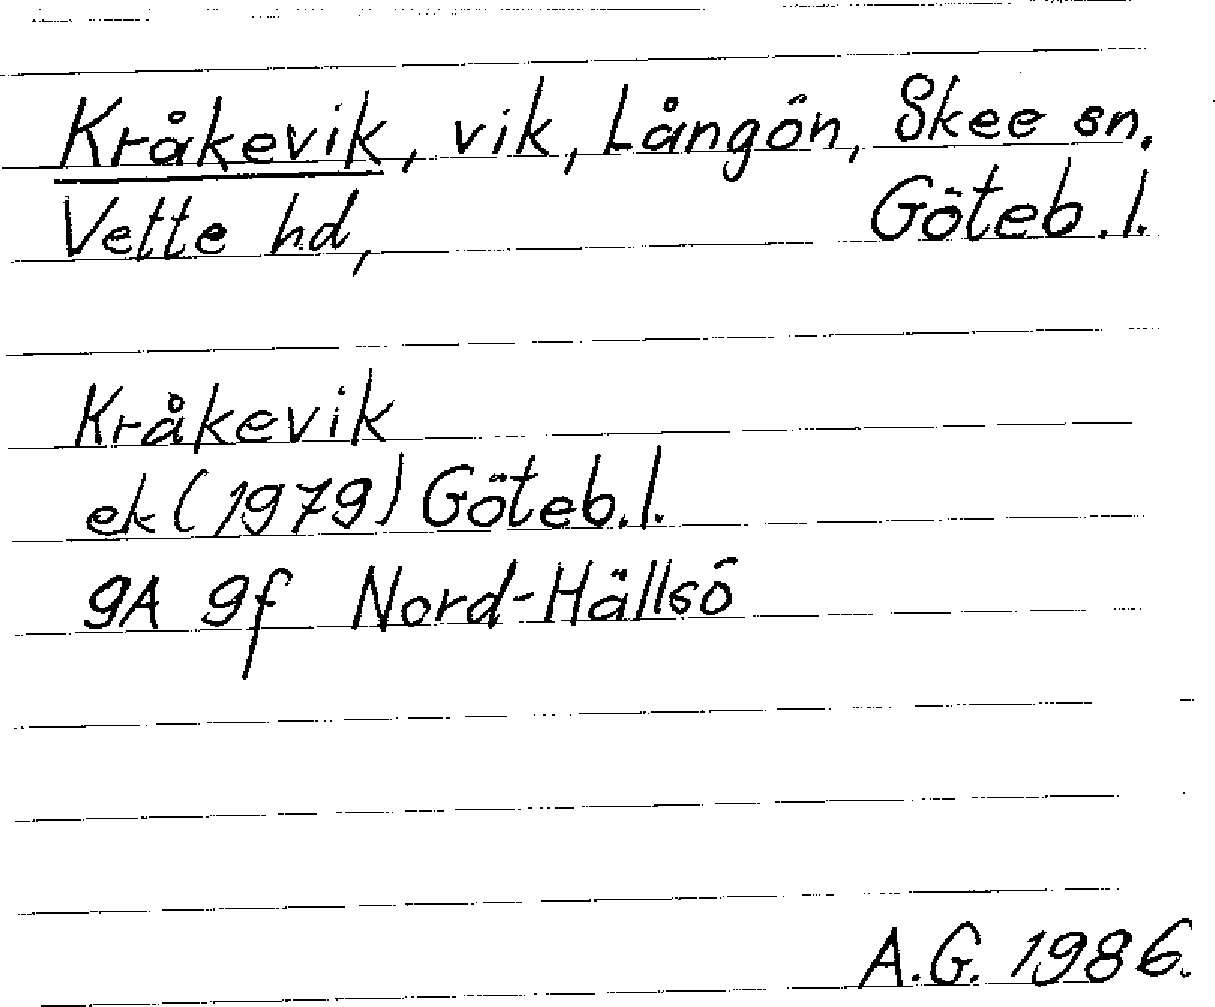 Kråkevik, vik, Långön, Skee sn.
Vette hd, Göteb. l.
Kråkevik
ek (1979) Göteb. l.
9A 9f Nord-Hällsö
A.G. 1986.